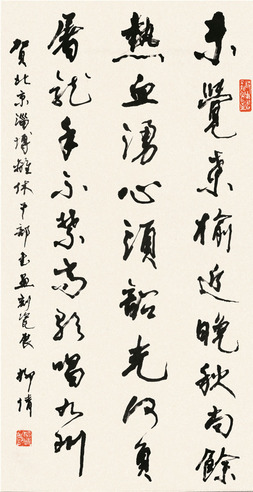 未覺桑榆近晚秋尚餘
熱血湧心頭韶光何負
屠龍手不禁高歌唱九州
賀北京淄博離休干部書畫刻瓷展 柳倩